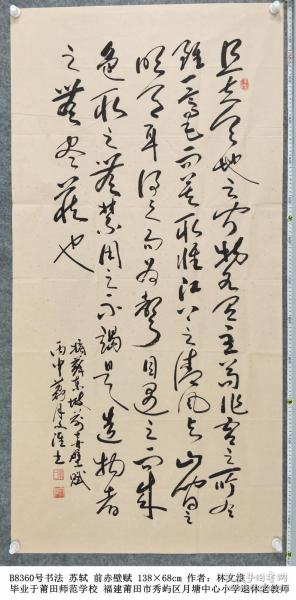 且夫天地之间物各有主苟非吾之所有
雖一毫而莫取惟江上之清风与山间之
明月耳得之而为聲目遇之而成
色取之無禁用之不竭是造物者
之無尽藏也
摘蘇东坡前赤壁赋
丙申
文淮书
B8360号书法 苏轼 前赤壁赋 138×68cm 作者：林文淮
毕业于莆田师范学校 福建莆田市秀屿区月塘中心小学退休老教师